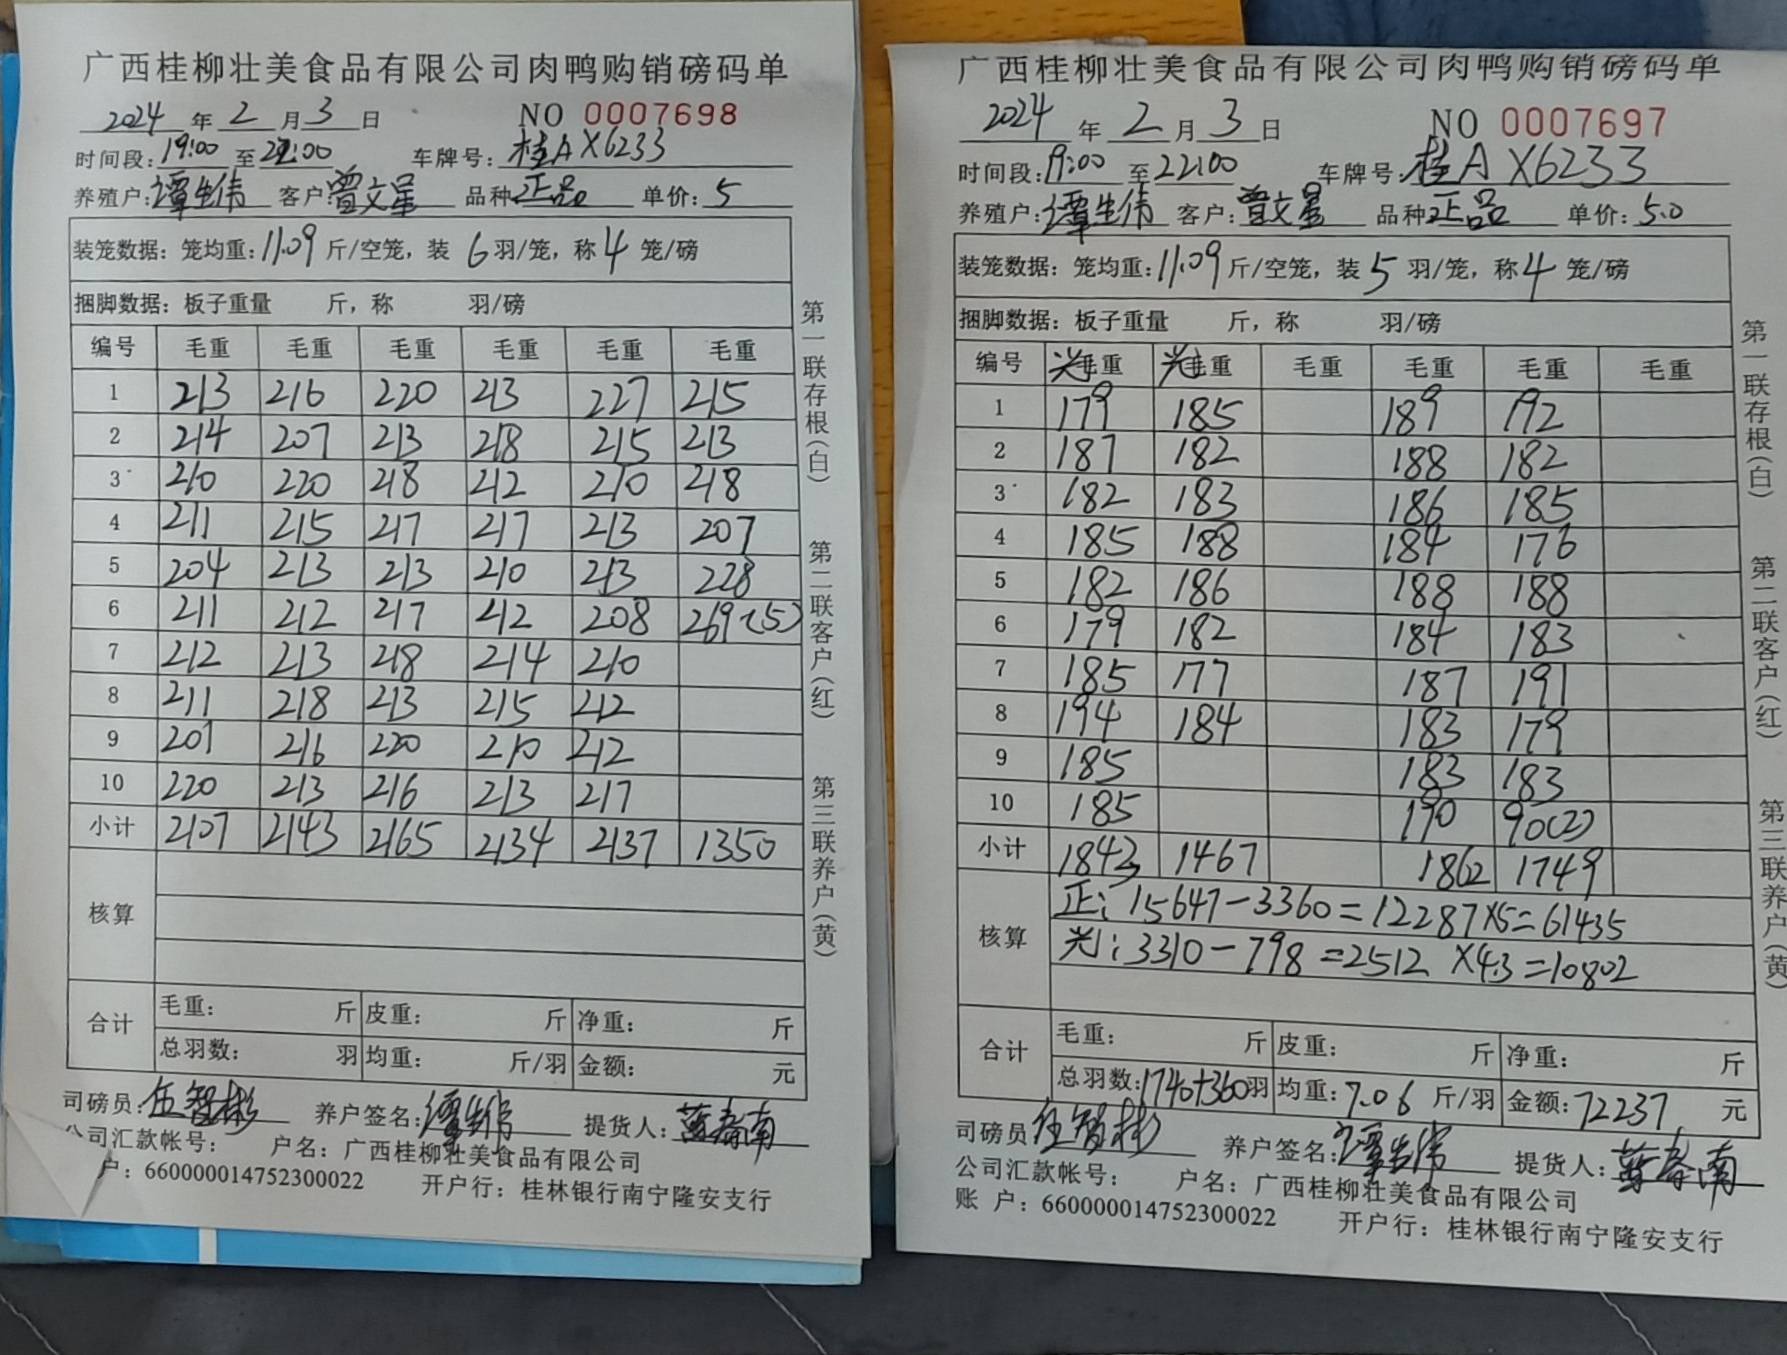 广西桂柳壮美食品有限公司肉鸭购销磅码单
2024 年 2 月 3 日 NO 0007698
时间段:19:00 至 22:00 车牌号:桂A X6233
养殖户:谭生伟 客户:曾文星 品种:正品 单价:5
装笼数据:笼均重:11.09 斤/空笼,装 6 羽/笼,称 4 笼/磅
捆脚数据:板子重量 斤,称 羽/磅
编号 毛重 毛重 毛重 毛重 毛重 毛重
1 213 216 220 213 227 215
2 214 207 213 218 215 213
3 210 220 218 212 210 218
4 211 215 217 217 213 207
5 204 213 213 210 213 228
6 211 212 217 212 208 269(5)
7 212 213 218 214 210
8 211 218 213 215 212
9 201 216 220 210 212
10 220 213 216 213 217
小计 2107 2143 2165 2134 2137 1350
核算
合计 毛重: 斤 皮重: 斤 净重: 斤
总羽数: 羽 均重: 斤/羽 金额: 元
司磅员:伍智彬 养户签名:谭生伟 提货人:蓝春南
公司汇款帐号: 户名:广西桂柳壮美食品有限公司
户:660000014752300022 开户行:桂林银行南宁隆安支行
第一联存根(白) 第二联客户(红) 第三联养户(黄)
广西桂柳壮美食品有限公司肉鸭购销磅码单
2024 年 2 月 3 日 NO 0007697
时间段:19:00 至 22:00 车牌号:桂A X6233
养殖户:谭生伟 客户:曾文星 品种:正品 单价:5.0
装笼数据:笼均重:11.09 斤/空笼,装 5 羽/笼,称 4 笼/磅
捆脚数据:板子重量 斤,称 羽/磅
编号 光毛重 光毛重 毛重 毛重 毛重 毛重
1 179 185 189 192
2 187 182 188 182
3 182 183 186 185
4 185 188 184 176
5 182 186 188 188
6 179 182 184 183
7 185 177 187 191
8 194 184 183 179
9 185 183 183
10 185 190 90(2)
小计 1843 1467 1862 1749
核算 正:15647-3360=12287×5=61435
光:3310-798=2512 ×4.3=10802
合计 毛重: 斤 皮重: 斤 净重: 斤
总羽数:1740+360羽 均重:7.06 斤/羽 金额:72237 元
司磅员:伍智彬 养户签名:谭生伟 提货人:蓝春南
公司汇款帐号: 户名:广西桂柳壮美食品有限公司
账 户:660000014752300022 开户行:桂林银行南宁隆安支行
第一联存根(白) 第二联客户(红) 第三联养户(黄)